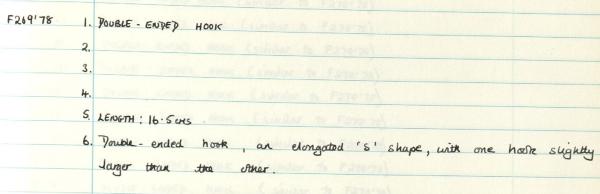 F269'78 1. DOUBLE-ENDED HOOK
2.
3.
4.
5. LENGTH: 16.5cms
6. Double-ended hook, an elongated 'S' shape, with one hook slightly
larger than the other.